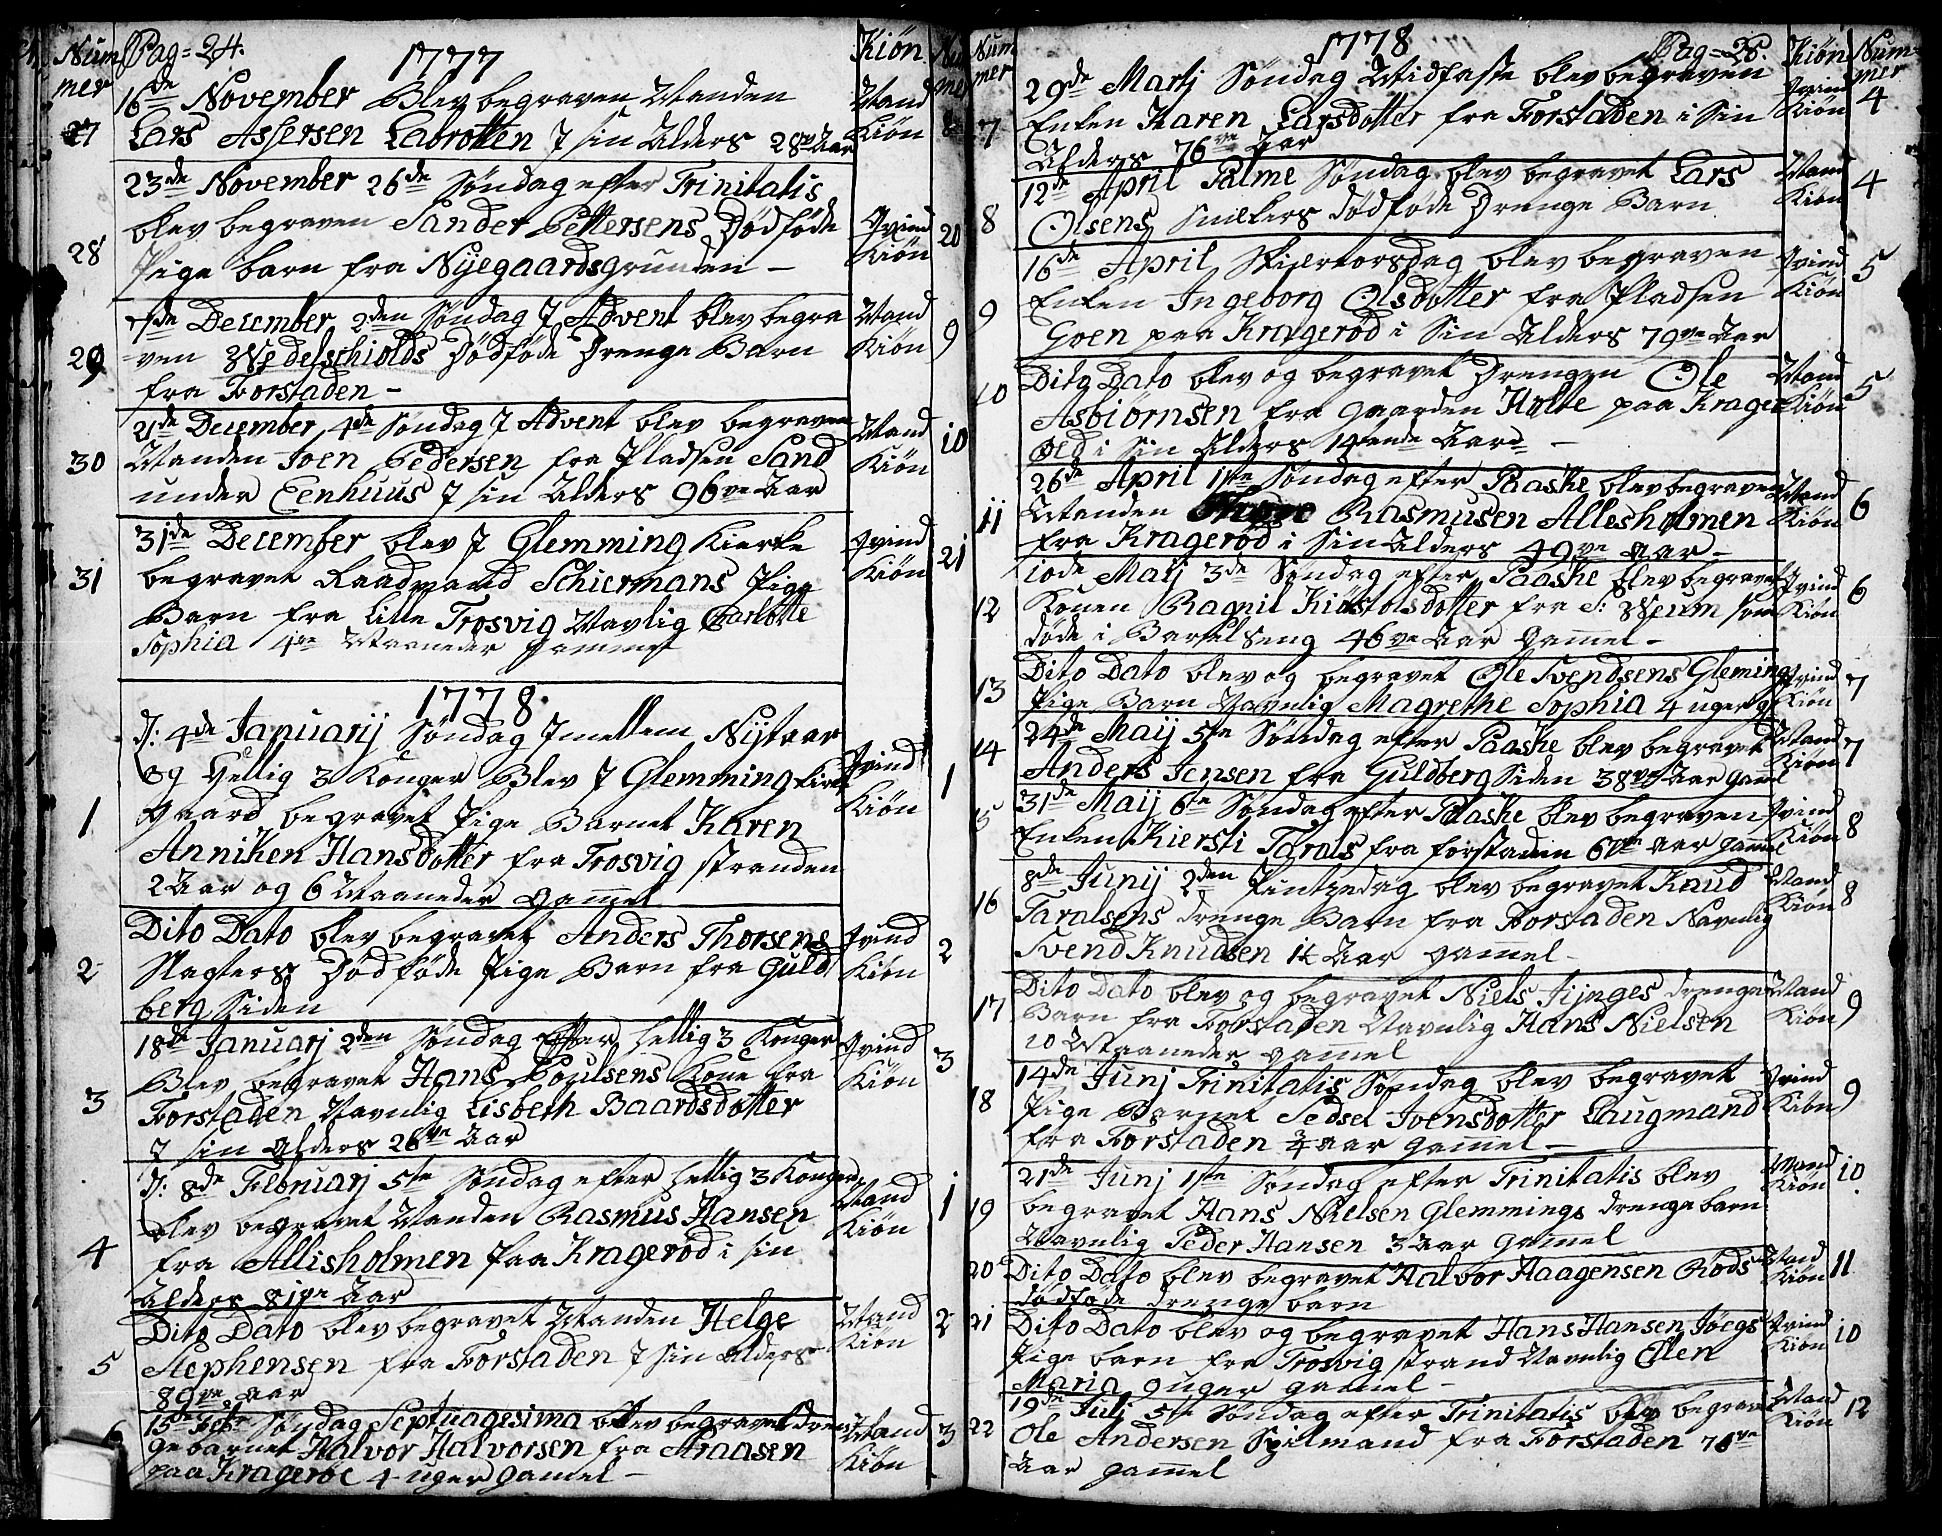 Pag= 24.
1777
Nummer
Kiøn
16de November Blev begraven Manden
27 Lars Assersen Labrotten J sin Alders 28de Aar
Mand Kiøn
23de November 26de Søndag efter Trinitatis
blev begraven Sander Pettersens Dødføde
28 Pige barn fra Nyegaardsgrunden –
Qvind Kiøn 20
7de December 2den Søndag J Advent blev begra
29 =ven Wedelschiolds Dødføde Drenge Barn
fra Forstaden –
Mand Kiøn 9
21de December 4de Søndag J Advent blev begraven
30 Manden Joen Pedersen fra Pladsen Sand
under Eenhuus J sin Alders 96ve Aar
Mand Kiøn 10
31de December blev J Glemming Kierke
31 begravet Raadmand Schiermans Pige
Barn fra Lille Trosvig Navnlig Charlotte
Sophia 4re Maaneder gammel
Qvind Kiøn 21
1778.
D: 4de Januarij Søndag Jmellem Nytaar
og Hellig 3 Konger Blev J Glemming Kirke
1 gaard begravet Pige Barnet Karen
Anniken Hansdotter fra Trosvig stranden
2 Aar og 6 Maaneder gamel
Qvind Kiøn 1
Dito Dato blev begravet Anders Thorsens
2 Slagters Dødføde Pige Barn fra Guld
berg Siden
Qvind Kiøn 2
18de Januarj 2den Søndag Efter Hellig 3 Konger
Blev begravet Hans Poulsens Kone fra
3 Forstaden Navnlig Lisbeth Baardsdotter
J sin Alders 26ve Aar
Qvind Kiøn 3
D: 8de Februarj 5te Søndag efter Hellig 3 Konger
blev begravet Manden Rasmus Hansen
4 fra Allisholmen paa Kragerød i sin
Alders 81ve Aar
Mand Kiøn 1
Dito Dato blev begravet Manden Helge
5 Stephensen fra Forstaden J sin Alders
89ve Aar
Mand Kiøn 2
15de Febr Søndag Septuagesima blev begravet dren
6 ge barnet Halvor Halvorsen fra Araasen
paa Kragerøe 4 uger gamel –
Mand Kiøn 3
1778
Pag= 25.
Nummer
Kiøn
Nummer
29de Martj Søndag Midfaste blev begraven
7 Enken Karen Larsdotter fra Forstaden i Sin
Alders 76ve Aar
Qvind Kiøn 4
12de April Palme Søndag blev begravet Lars
8 Olsens Snekers dødføde Drenge Barn
Mand Kiøn 4
16de April Skiertorsdag blev begraven
9 Enken Ingeborg Olsdotter fra Pladsen
Goen paa Kragerød i Sin Alders 79ve Aar
Qvind Kiøn 5
Dito Dato blev og begravet Drengen Ole
10 Asbiørnsen fra Gaarden Holte paa Krager
Ød i Sin Alders 14tende Aar
Mand Kiøn 5
26de April 1ste Søndag efter Paaske blev begraven
11 Manden Rasmusen Allesholmen
fra Kragerød i Sin Alders 49ve Aar –
Mand Kiøn 6
10de Maij 3de Søndag efter Paaske blev begravet
12 Konen Ragnil Kiøstolsdotter fra S: Werum som
døde i Barsel Seng 46ve Aar gamel –
Qvind Kiøn 6
Dito Dato blev og begravet Ole Svendsens Glemings
13 Pige Barn Navnlig Magrethe Sophia 4 uger g
Qvind Kiøn 7
24de Maij 5te Søndag efter Paaske blev begravet
14 Anders Jensen fra Guldberg Siden 38ve Aar gamel
Mand Kiøn 7
31de Maij 6te Søndag efter Paaske blev begraven
15 Enken Kiersti Tarals fra forstaden 61ve Aar gamel
Qvind Kiøn 8
8de Junij 2den Pintzedag blev begravet Knud
16 Taralsens drenge Barn fra Forstaden Navnlig
Svend Knudsen 1¼ Aar gamel –
Mand Kiøn 8
Dito Dato blev og begravet Niels Jynges drenge
17 Barn fra Forstaden Navnlig Hans Nielsen
10 Maaneder gamel
Mand Kiøn 9
14de Junj Trinitatis Søndag blev begravet
18 Pige Barnet Sedsel Joensdotter Laugmand
fra Forstaden ¾ aar gamel –
Qvind Kiøn 9
21de Junj 1ste Søndag efter Trinitatis blev
19 begravet Hans Nielsen Glemmings drenge barn
Navnlig Peder Hansen 3 Aar gamel
Mand Kiøn 10
20 Dito Dato blev begravet Halvor Haagensen Røds
dødføde drenge barn
Mand Kiøn 11
21 Dito Dato blev og begravet Hans Hansen Jøegs
Pige barn fra Trosvig strand Navnlig Ellen
Maria 9 uger gamel –
Qvind Kiøn 10
19de Julj 5te Søndag efter Trinitatis blev begrav
22 Ole Andersen Spilmand fra Forstaden 76ve
Aar gamel
Mand Kiøn 12